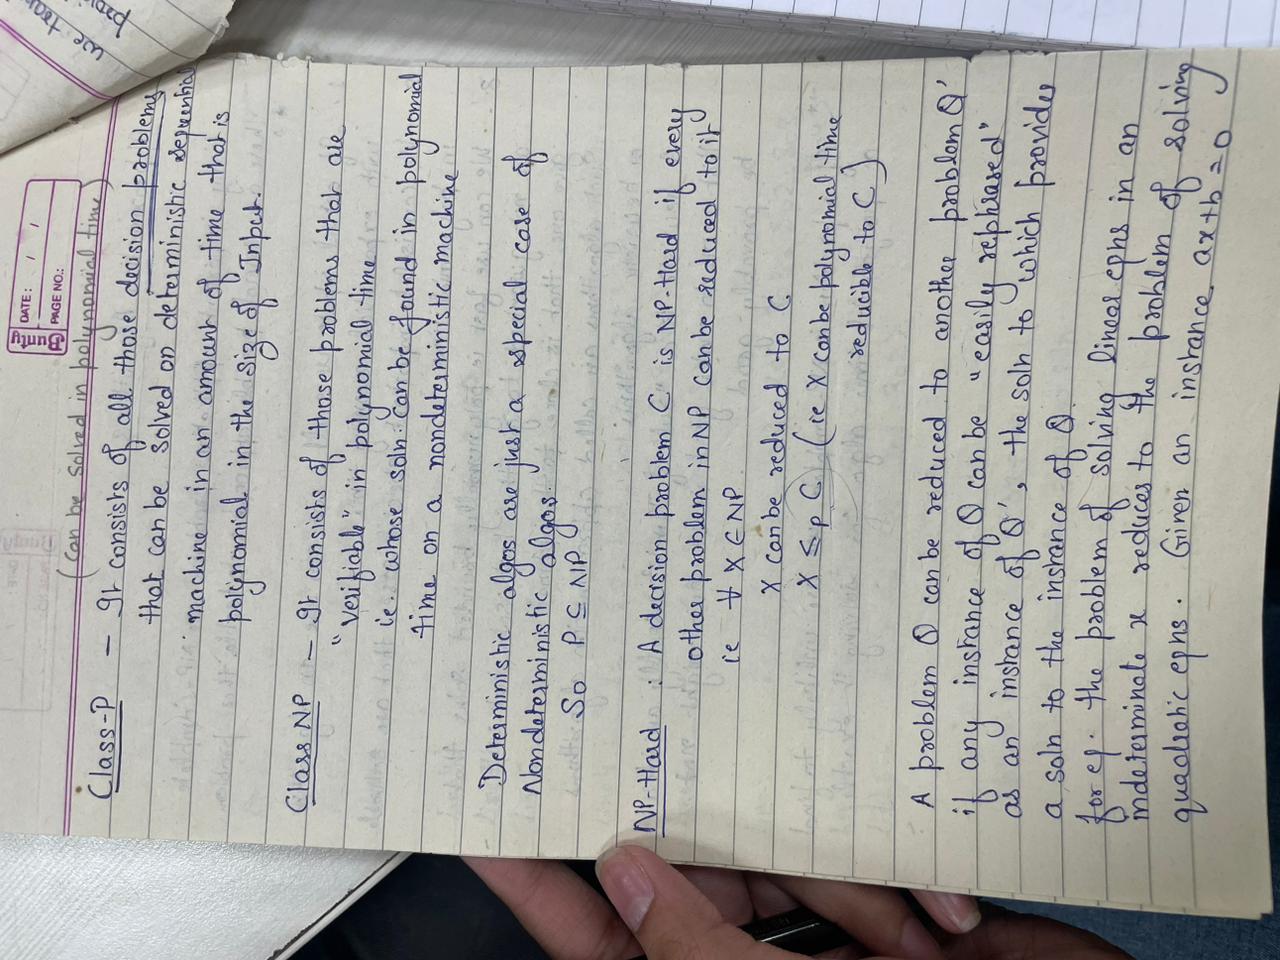 Bunty
DATE: / /
PAGE NO.:
(can be solved in polynomial time)
Class-P - It consists of all those decision problems
that can be solved on deterministic sequential
machine in an amount of time that is
polynomial in the size of Input.
Class NP - It consists of those problems that are
"verifiable" in polynomial time
ie. whose soln. can be found in polynomial
time on a nondeterministic machine
Deterministic algos are just a special case of
Nondeterministic algos.
So P ⊆ NP
NP-Hard : A decision problem C is NP-Hard if every
other problem in NP can be reduced to it
ie ∀ X ∈ NP
X can be reduced to C
X ≤p C (ie X can be polynomial time
reducible to C]
A problem Q can be reduced to another problem Q'
if any instance of Q can be "easily rephrased"
as an instance of Q', the soln to which provides
a soln to the instance of Q.
for eg. the problem of solving linear eqns in an
indeterminate x reduces to the problem of solving
quadratic eqns. Given an instance ax+b=0
we